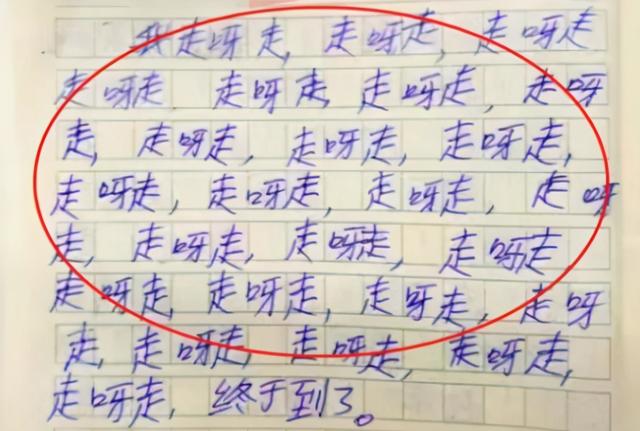 我走呀走，走呀走，走呀走
走呀走 走呀走 走呀走，走呀
走，走呀走，走呀走，走呀走，
走呀走，走呀走，走呀走，走呀
走，走呀走，走呀走，走呀走，
走呀走，走呀走，走呀走，走呀
走，走呀走，走呀走，走呀走，
走呀走，终于到了。